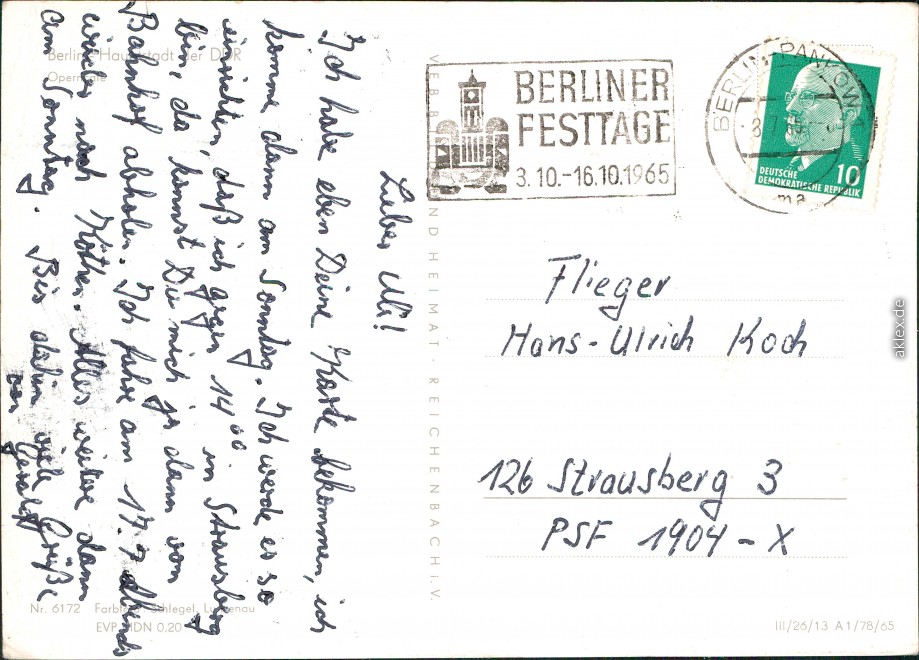 Berlin, Hauptstadt der DDR
Liebes Uli!
Ich habe eben Deine Karte bekommen, ich
komme dann am Sonntag. Ich werde es so
einrichten, daß ich gegen 14⁰⁰ in Strausberg
bin, da kannst Du mich ja dann vom
Bahnhof abholen. Ich fahre am 17.7. abends
wieder nach Köthen. Alles weitere dann
am Sonntag. Bis dahin viele Grüße
von
Nr. 6172 Farbfoto: Schlegel,
EVP MDN 0.20
VEB BILD UND HEIMAT REICHENBACH I.V.
BERLINER
FESTTAGE
3.10.-16.10.1965
BERLIN-PANKOW 1
DEUTSCHE
DEMOKRATISCHE REPUBLIK
10
Flieger
Hans-Ulrich Koch
126 Strausberg 3
PSF 1904-X
III/26/13 A1/78/65
aklex.de